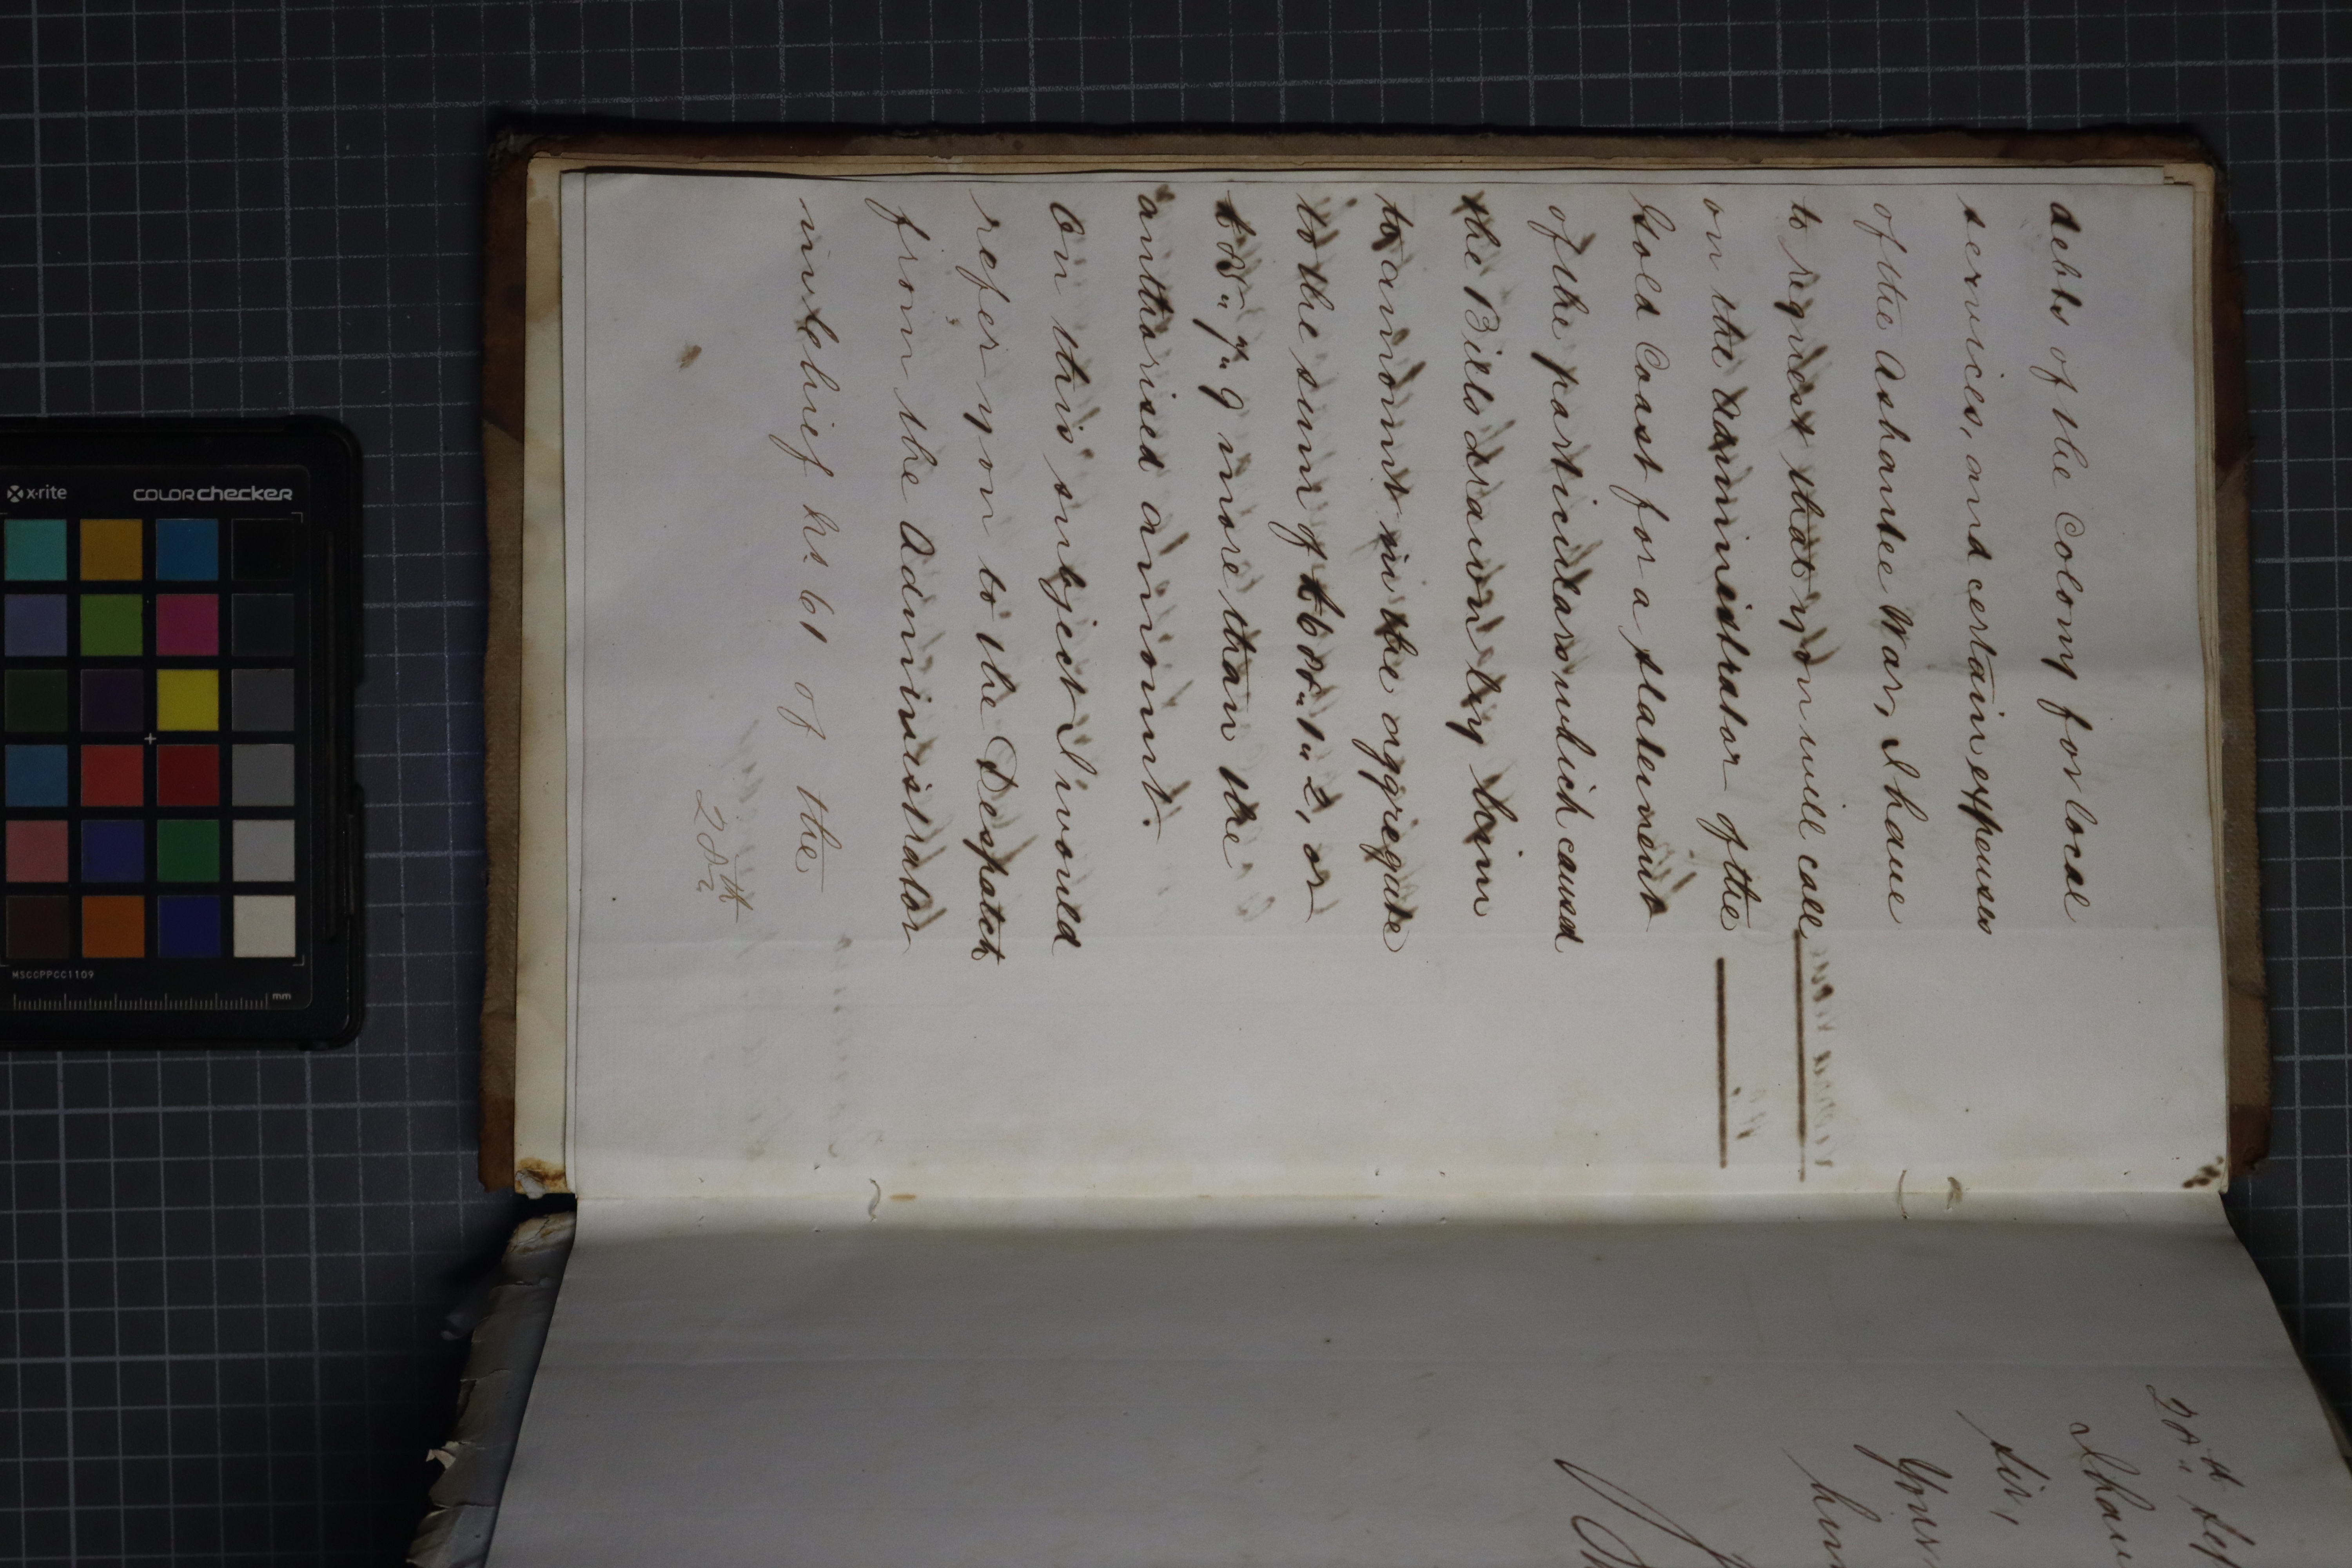 debts of the Colony for local
services, and certain expenses
of the Ashantee War, I have
to request that you will call
on the Administrator of the
Gold Coast for a statement
of the particulars which caused
the Bills drawn by him
to amount in the aggregate
to the sum of £608"1"2, or
£8"7"9 more than the
authorised amount.
On this subject I would
refer you to the Despatch
from the Administrator
in chief No. 61 of the
28th
28th Sep
I have
Sir,
Your
hum